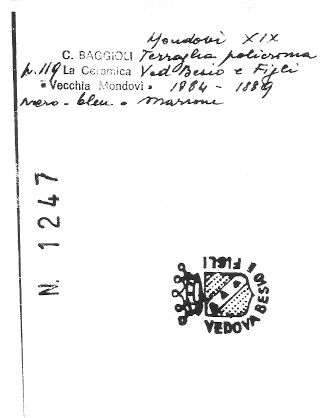 Mondovì XIX
C. BAGGIOLI Terraglia policroma
p. 119 La Ceramica Ved Besio e Figli
"Vecchia Mondovì" 1884 - 1889
nero - bleu - marrone
N. 1247
VEDOVA BESIO E FIGLI